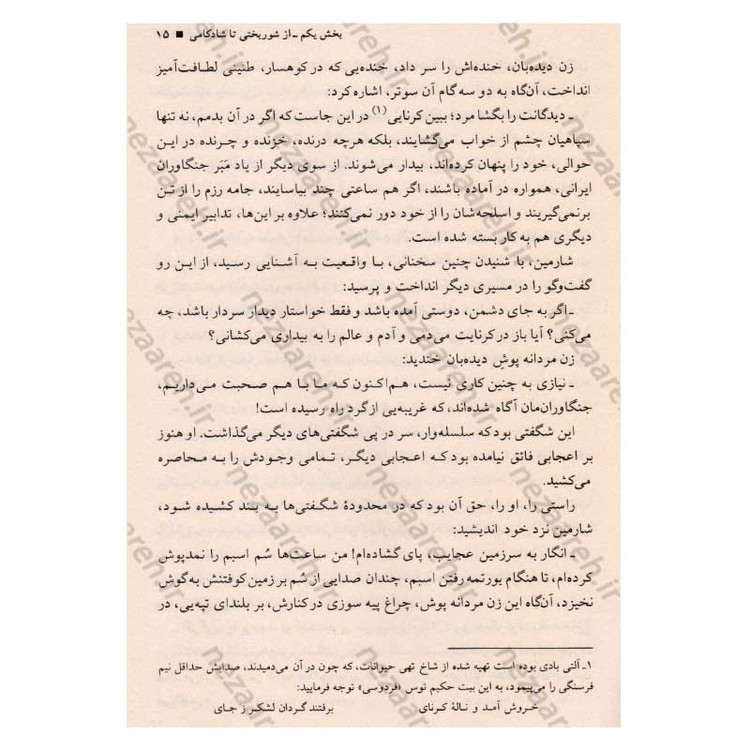 بخش یکم ـ از شوربختی تا شادکامی ■ ۱۵
زن دیده‌بان، خنده‌اش را سر داد، خنده‌یی که در کوهسار، طنینی لطافت‌آمیز
انداخت، آن‌گاه به دو سه گام آن سوتر، اشاره کرد:
ـ دیدگانت را بگشا مرد؛ ببین کرنایی(۱) در این جاست که اگر در آن بدمم، نه تنها
سپاهیان چشم از خواب می‌گشایند، بلکه هرچه درنده، خزنده و چرنده در این
حوالی، خود را پنهان کرده‌اند، بیدار می‌شوند. از سوی دیگر از یاد مَبَر جنگاوران
ایرانی، همواره در آماده باشند، اگر هم ساعتی چند بیاسایند، جامه رزم را از تن
برنمی‌گیرند و اسلحه‌شان را از خود دور نمی‌کنند؛ علاوه بر این‌ها، تدابیر ایمنی و
دیگری هم به کار بسته شده است.
شارمین، با شنیدن چنین سخنانی، با واقعیت به آشنایی رسید، از این رو
گفت‌وگو را در مسیری دیگر انداخت و پرسید:
ـ اگر به جای دشمن، دوستی آمده باشد و فقط خواستار دیدار سردار باشد، چه
می‌کنی؟ آیا باز در کرنایت می‌دمی و آدم و عالم را به بیداری می‌کشانی؟
زن مردانه پوش دیده‌بان خندید:
ـ نیازی به چنین کاری نیست، هم‌اکنون که ما با هم صحبت می‌داریم،
جنگاوران‌مان آگاه شده‌اند، که غریبه‌یی از گرد راه رسیده است!
این شگفتی بود که سلسله‌وار، سر در پی شگفتی‌های دیگر می‌گذاشت. او هنوز
بر اعجابی فائق نیامده بود که اعجابی دیگر، تمامی وجودش را به محاصره
می‌کشید.
راستی را، او را، حق آن بود که در محدودهٔ شگفتی‌ها به بند کشیده شود،
شارمین نزد خود اندیشید:
ـ انگار به سرزمین عجایب، پای گشاده‌ام! من ساعت‌ها سُم اسبم را نمدپوش
کرده‌ام، تا هنگام یورتمه رفتن اسبم، چندان صدایی از سُم بر زمین کوفتنش به گوش
نخیزد، آن‌گاه این زن مردانه پوش، چراغ پیه سوزی در کنارش، بر بلندای تپه‌یی، در
۱ـ آلتی بادی بوده است تهیه شده از شاخ تهی حیوانات، که چون در آن می‌دمیدند، صدایش حداقل نیم
فرسنگی را می‌پیمود، به این بیت حکیم توس «فردوسی» توجه فرمایید:
خروش آمد و نالهٔ کرنای برفتند گردان لشکر ز جای
nezaareh.ir